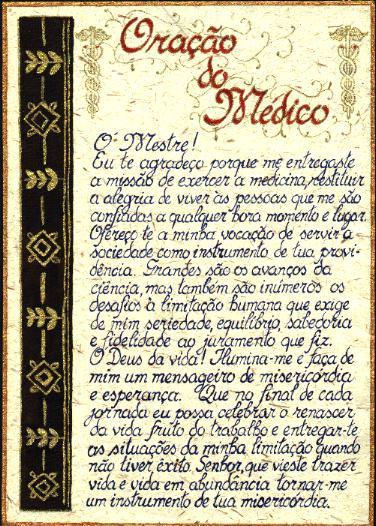 Oração
do
Medico
Ó Mestre!
Eu te agradeço porque me entregaste
a missão de exercer a medicina, restituir
a alegria de viver às pessoas que me são
confiadas a qualquer hora momento e lugar.
Ofereço te a minha vocação de servir a
sociedade como instrumento de tua provi-
dência. Grandes são os avanços da
ciência, mas também são inúmeros os
desafios à limitação humana que exige
de mim seriedade, equilíbrio, sabedoria
e fidelidade ao juramento que fiz.
O Deus da vida! Ilumina-me e faça de
mim um mensageiro de misericórdia
e esperança. Que no final de cada
jornada eu possa celebrar o renascer
da vida fruto do trabalho e entregar-te
as situações da minha limitação quando
não tiver êxito. Senhor, que vieste trazer
vida e vida em abundância tornar-me
um instrumento de tua misericórdia.